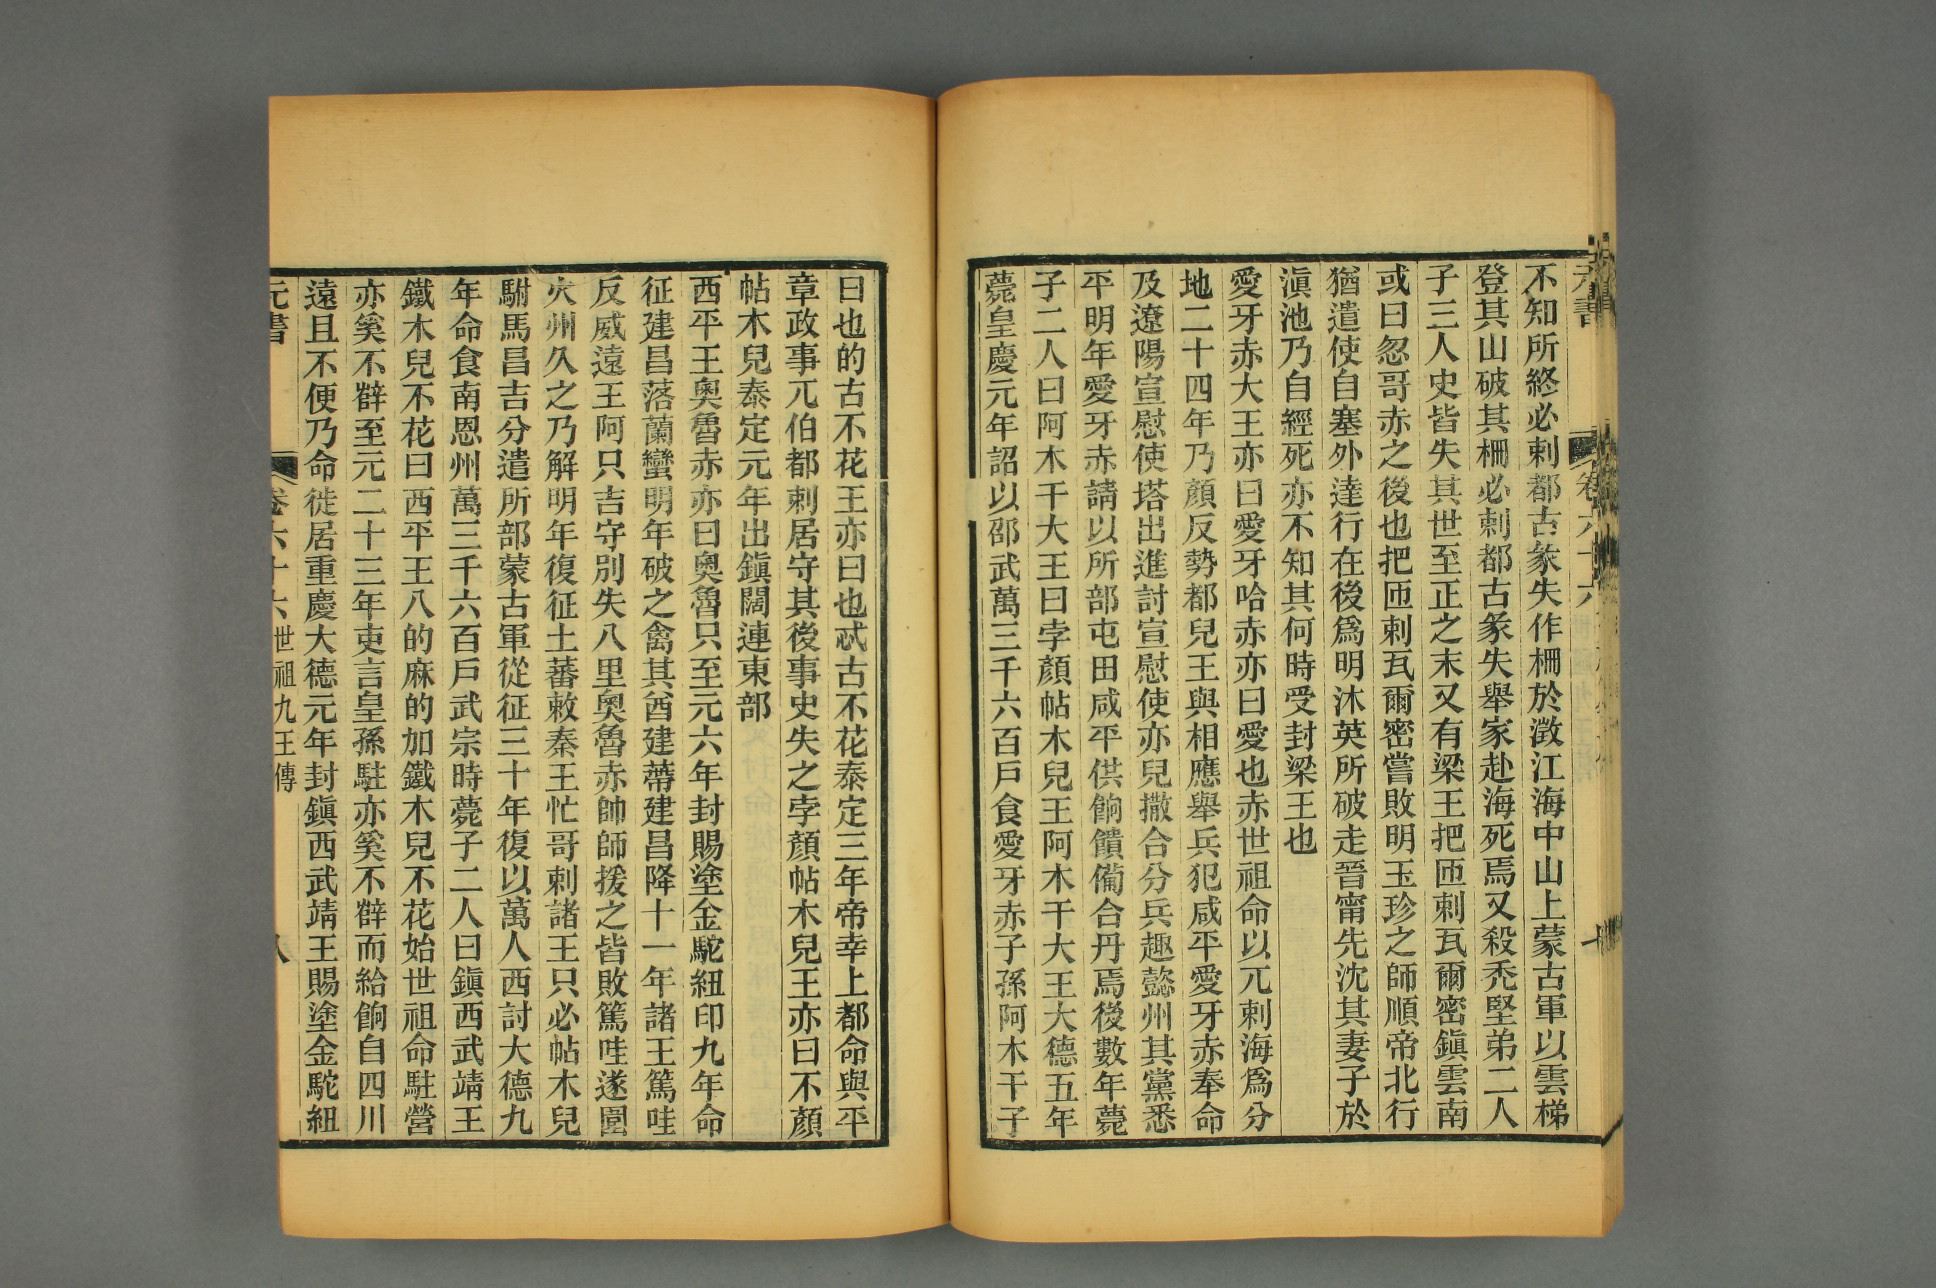 元書
卷六十六
不知所終必剌都古彖失作柵於澂江海中山上蒙古軍以雲梯
登其山破其柵必剌都古彖失舉家赴海死焉又殺禿堅弟二人
子三人史皆失其世至正之末又有梁王把匝剌瓦爾密鎭雲南
或曰忽哥赤之後也把匝剌瓦爾密嘗敗明玉珍之師順帝北行
猶遣使自塞外達行在後爲明沐英所破走晉甯先沈其妻子於
滇池乃自經死亦不知其何時受封梁王也
愛牙赤大王亦曰愛牙哈赤亦曰愛也赤世祖命以兀剌海爲分
地二十四年乃顏反勢都兒王與相應舉兵犯咸平愛牙赤奉命
及遼陽宣慰使塔出進討宣慰使亦兒撒合分兵趣懿州其黨悉
平明年愛牙赤請以所部屯田咸平供餉饋備合丹焉後數年薨
子二人曰阿木干大王曰孛顏帖木兒王阿木干大王大德五年
薨皇慶元年詔以邵武萬三千六百戶食愛牙赤子孫阿木干子
曰也的古不花王亦曰也忒古不花泰定三年帝幸上都命與平
章政事兀伯都剌居守其後事史失之孛顏帖木兒王亦曰不顏
帖木兒泰定元年出鎭闊連東部
西平王奧魯赤亦曰奧魯只至元六年封賜塗金駝紐印九年命
征建昌落蘭蠻明年破之禽其酋建蔕建昌降十一年諸王篤哇
反威遠王阿只吉守別失八里奧魯赤帥師援之皆敗篤哇遂圍
火州久之乃解明年復征土蕃敕秦王忙哥剌諸王只必帖木兒
駙馬昌吉分遣所部蒙古軍從征三十年復以萬人西討大德九
年命食南恩州萬三千六百戶武宗時薨子二人曰鎭西武靖王
鐵木兒不花曰西平王八的麻的加鐵木兒不花始世祖命駐營
亦奚不辥至元二十三年吏言皇孫駐亦奚不辥而給餉自四川
遠且不便乃命徙居重慶大德元年封鎭西武靖王賜塗金駝紐
元書
卷六十六 世祖九王傳
八